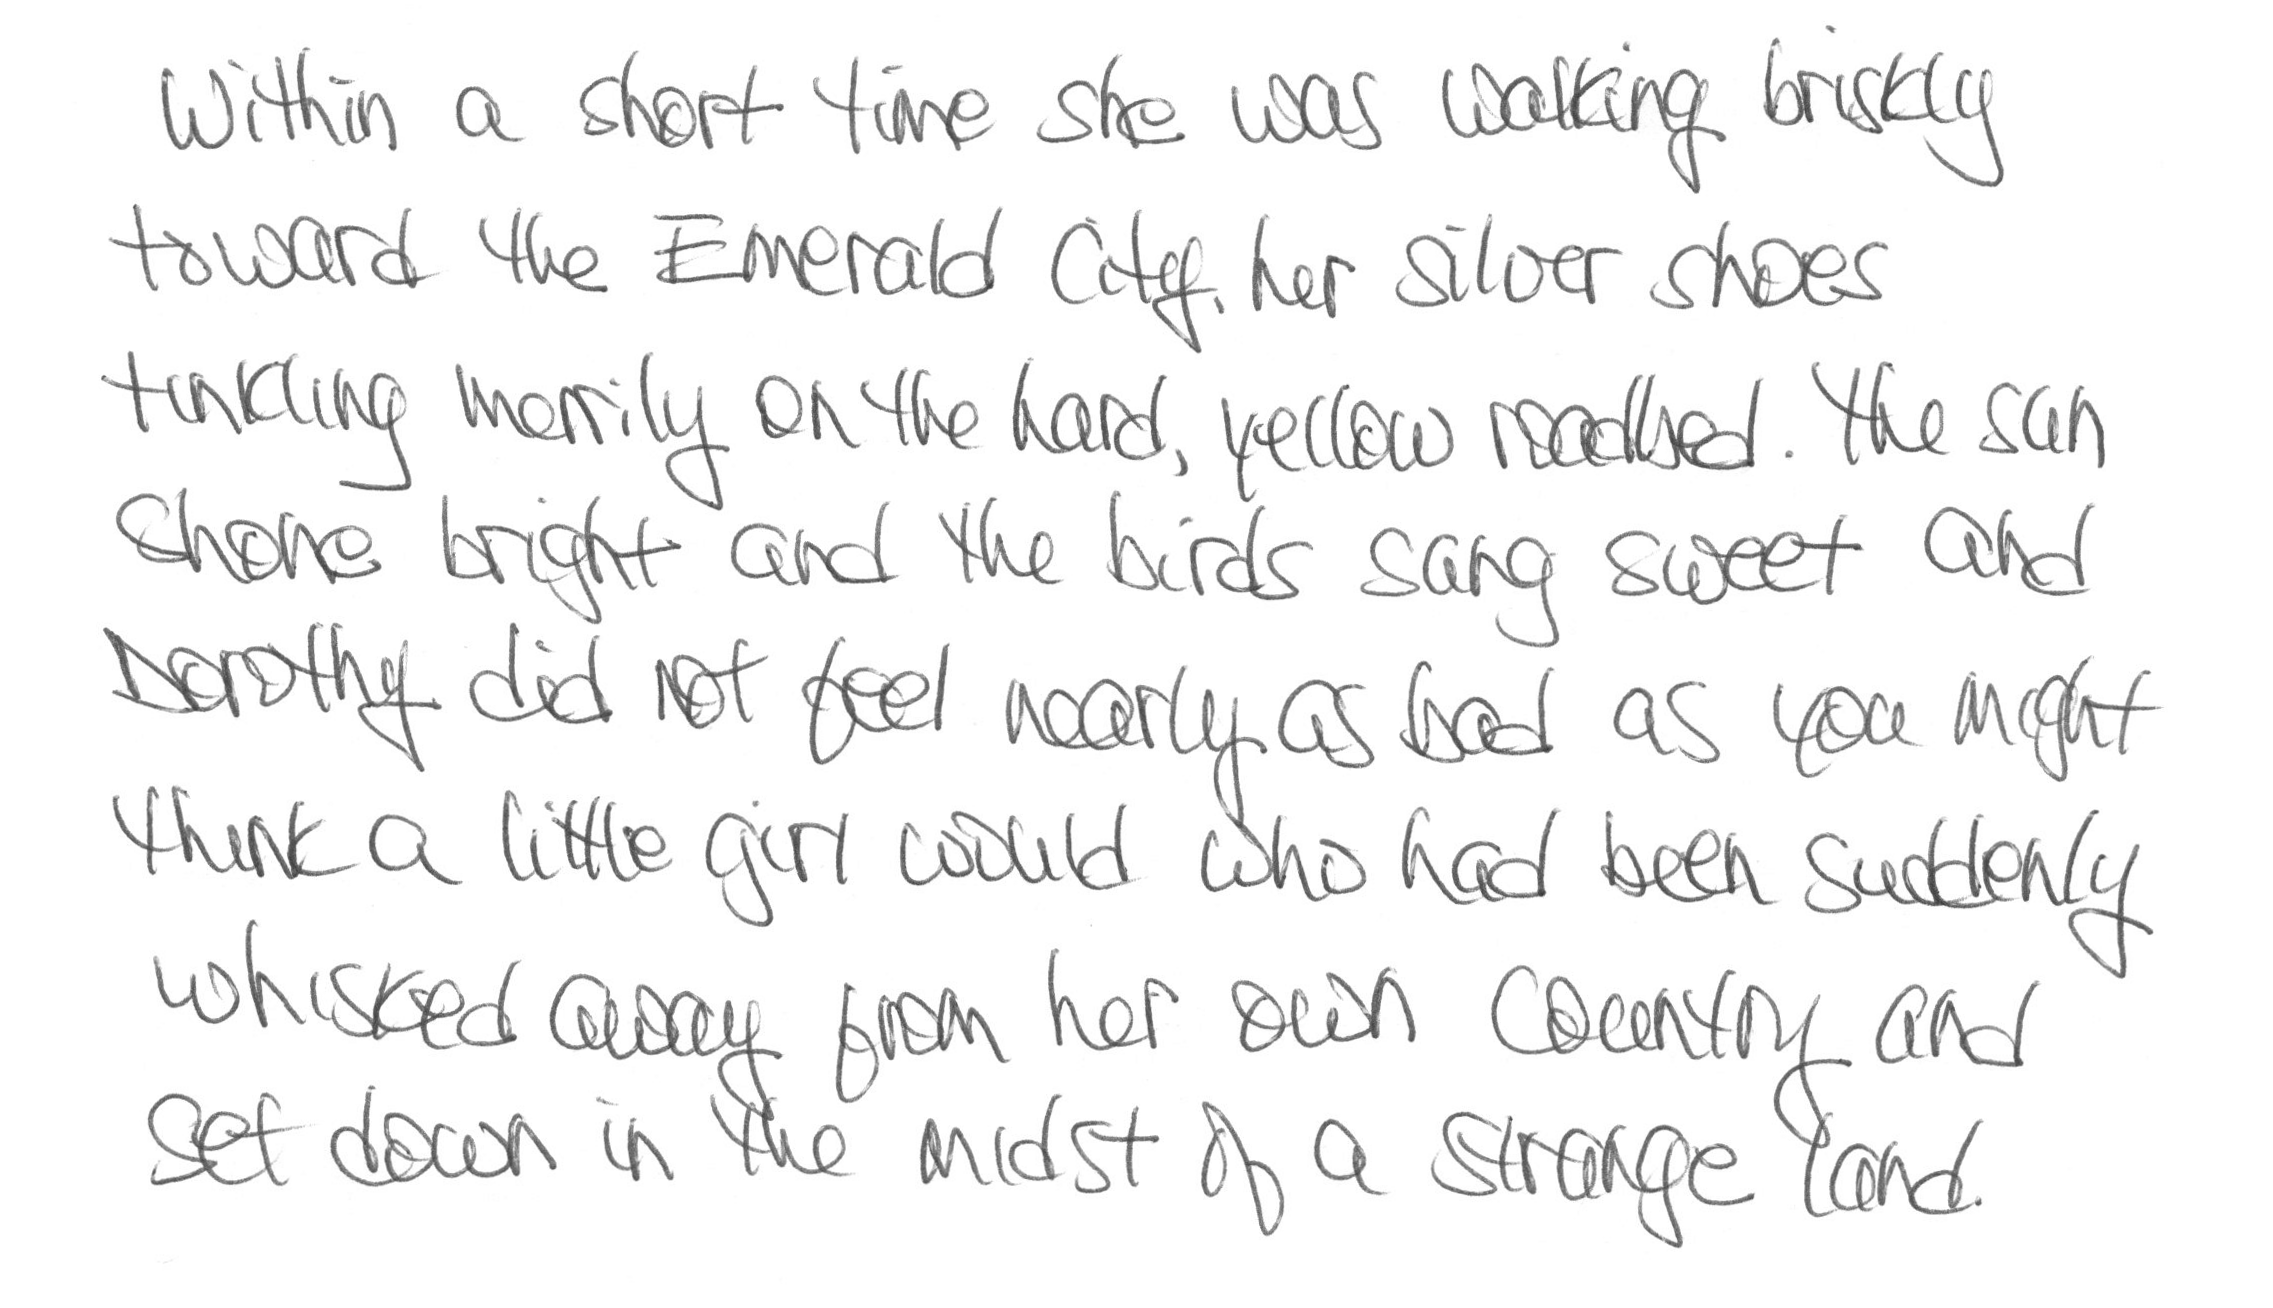 Within a short time she was walking briskly
toward the Emerald City, her silver shoes
tinkling merrily on the hard, yellow roadbed. The sun
shone bright and the birds sang sweet and
Dorothy did not feel nearly as bad as you might
think a little girl would who had been suddenly
whisked away from her own country and
set down in the midst of a strange land.